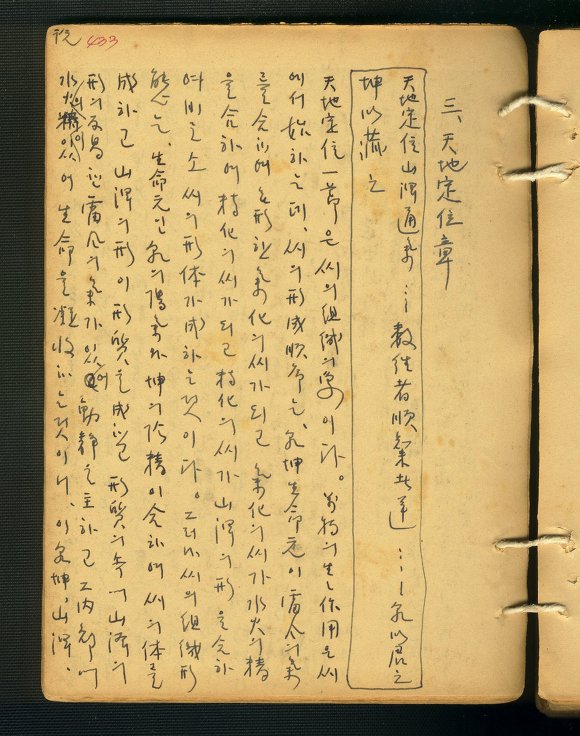 역 433
三、天地定位章
天地定位山澤通氣…數往者順知來者逆……乾以君之
坤以藏之
天地定位一節은 씨의 組織의 象이다。萬物의 生生作用은 씨
에서 始하는데、씨의 形成順序는、乾坤生命元이 雷風의 氣
를 合하여 無形한 氣化의 씨가 되고 氣化의 씨가 水火의 精
을 合하여 精化의 씨가 되고 精化의 씨가 山澤의 形을 合하
여 비로소 씨의 形体가 成하는 것이다。그러나 씨의 組織形
態는、生命元인 乾의 陽氣와 坤의 陰精이 合하여 씨의 体를
成하고 山澤의 形이 形質을 成하고 形質의 속에 山澤의
形의 反易인 雷風의 氣가 있어 動靜을 主하고 그 內部에
水火의 精이 있어 生命을 凝收하는 것이니、이 乾坤、山澤、